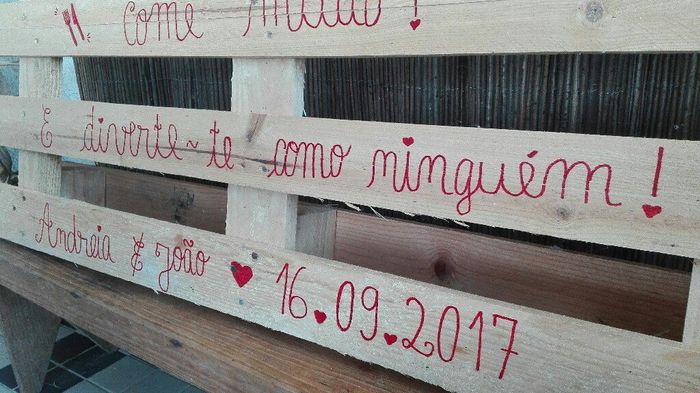 Come muito!
E diverte-te como ninguém!
Andreia & João 16.09.2017